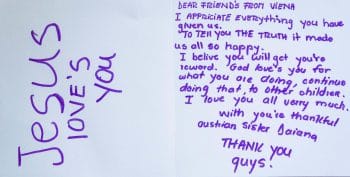 Jesus
love's
you
DEAR FRIEND'S FROM VIENA
I APPRICIATE EVERYthing you have
given us.
TO TELL you THE TRUTH it made
us all so happy.
I belive you will get you're
reword. God love's you for
what you are doing, continue
doing that, to other childrer.
I love you all verry much.
with you're thankful
austrian Sister Daiana
THANK YOU
guys!